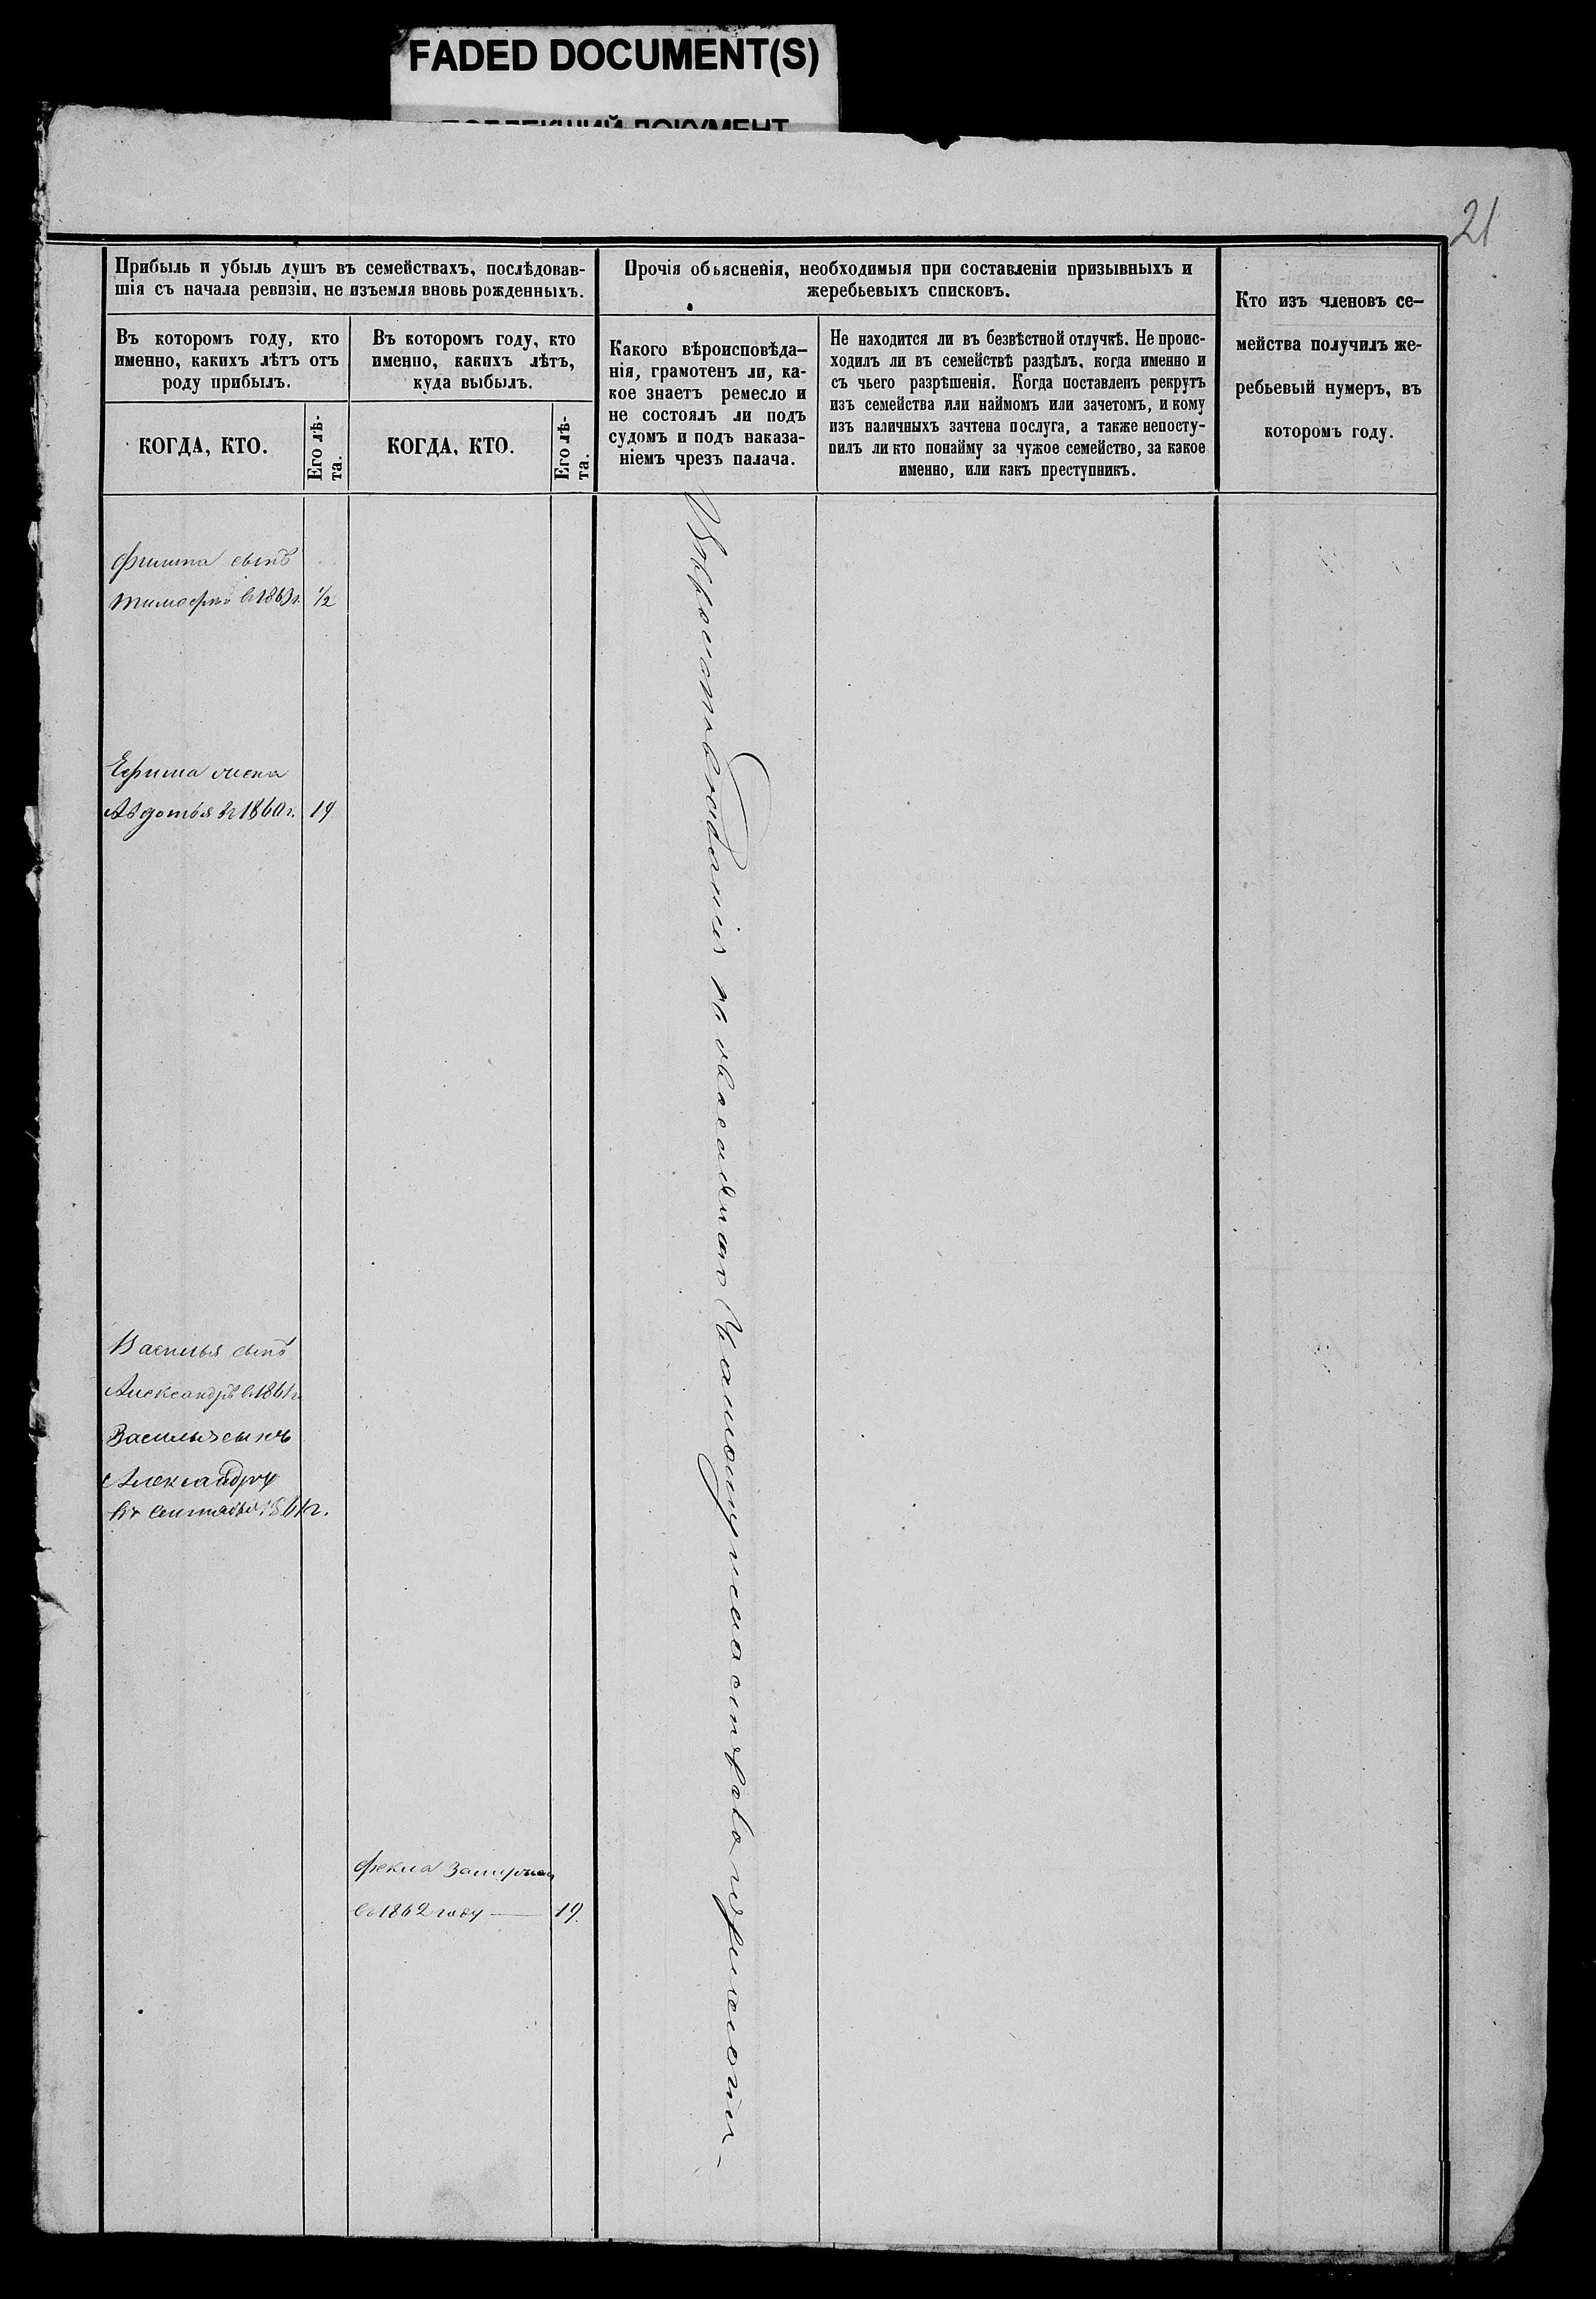 FADED DOCUMENT(S)
21
Прибыль и убыль душъ въ семействахъ, послѣдовав-
шія съ начала ревизіи, не изъемля вновь рожденныхъ.
Въ которомъ году, кто
именно, какихъ лѣтъ отъ
роду прибылъ.
КОГДА, КТО.
Его лѣ-
та.
Въ которомъ году, кто
именно, какихъ лѣтъ,
куда выбылъ.
КОГДА, КТО.
Его лѣ-
та.
Прочія объясненія, необходимыя при составленіи призывныхъ и
жеребьевыхъ списковъ.
Какого вѣроисповѣда-
нія, грамотенъ ли, ка-
кое знаетъ ремесло и
не состоялъ ли подъ
судомъ и подъ наказа-
ніемъ чрезъ палача.
Не находится ли въ безвѣстной отлучкѣ. Не проис-
ходилъ ли въ семействѣ раздѣлъ, когда именно и
съ чьего разрѣшенія. Когда поставленъ рекрутъ
изъ семейства или наймомъ или зачетомъ, и кому
изъ наличныхъ зачтена послуга, а также непосту-
пилъ ли кто понайму за чужое семейство, за какое
именно, или какъ преступникъ.
Кто изъ членовъ се-
мейства получилъ же-
ребьевый нумеръ, въ
которомъ году.
сынъ
Тимофей в 1863 г. ½
Ефима жена
Авдотья в 1860 г. 19
Василья сынъ
Александръ в 1861 г.
Василья сынъ
Александръ
въ 1861 г.
Фекла
в 1862 году — 19.